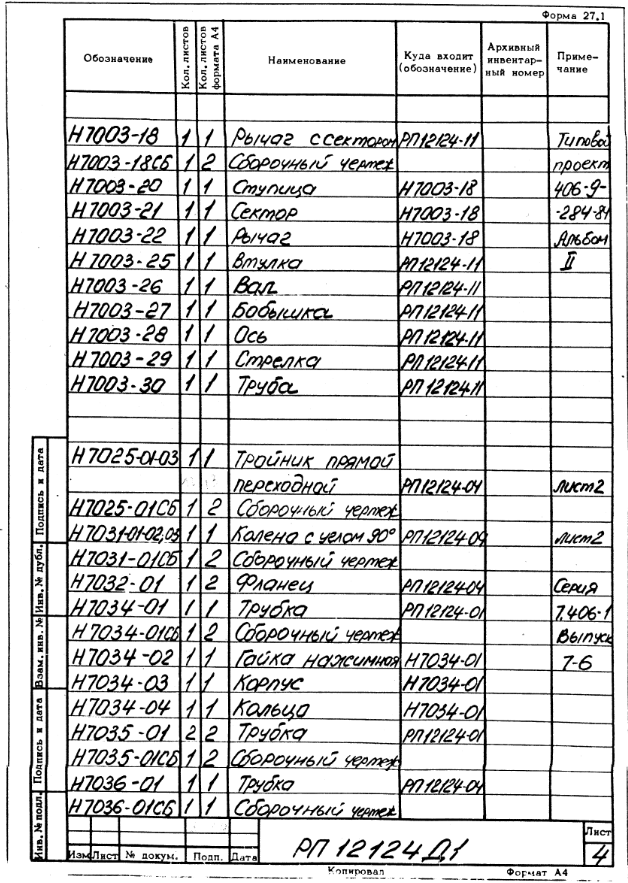 Форма 27.1
Обозначение Кол. листов Кол. листов формата А4 Наименование Куда входит (обозначение) Архивный инвентар-ный номер Приме-чание
Н7003-18 1 1 Рычаг с сектором РП12124-11 Типовой
Н7003-18СБ 1 2 Сборочный чертеж проект
Н7003-20 1 1 Ступица Н7003-18 406-9-
Н7003-21 1 1 Сектор Н7003-18 -284-84
Н7003-22 1 1 Рычаг Н7003-18 Альбом
Н7003-25 1 1 Втулка РП12124-11 II
Н7003-26 1 1 Вал РП12124-11
Н7003-27 1 1 Бобышка РП12124-11
Н7003-28 1 1 Ось РП12124-11
Н7003-29 1 1 Стрелка РП12124-11
Н7003-30 1 1 Труба РП12124-11
Н7025-01-03 1 1 Тройник прямой
переходной РП12124-04 лист2
Н7025-01СБ 1 2 Сборочный чертеж
Н7031-01-02,03 1 1 Колена с углом 90° РП12124-04 лист2
Н7031-01СБ 1 2 Сборочный чертеж
Н7032-01 1 2 Фланец РП12124-04 Серия
Н7034-01 1 1 Трубка РП12124-01 7.406-1
Н7034-01СБ 1 2 Сборочный чертеж Выпуск
Н7034-02 1 1 Гайка нажимная Н7034-01 7-6
Н7034-03 1 1 Корпус Н7034-01
Н7034-04 1 1 Кольцо Н7034-01
Н7035-01 2 2 Трубка РП12124-01
Н7035-01СБ 1 2 Сборочный чертеж
Н7036-01 1 1 Трубка РП12124-04
Н7036-01СБ 1 1 Сборочный чертеж
Подпись и дата
Инв. № дубл.
Взам. инв. №
Подпись и дата
Инв. № подл.
Изм Лист № докум. Подп. Дата
РП 12124 Д1
Лист
4
Копировал Формат А4